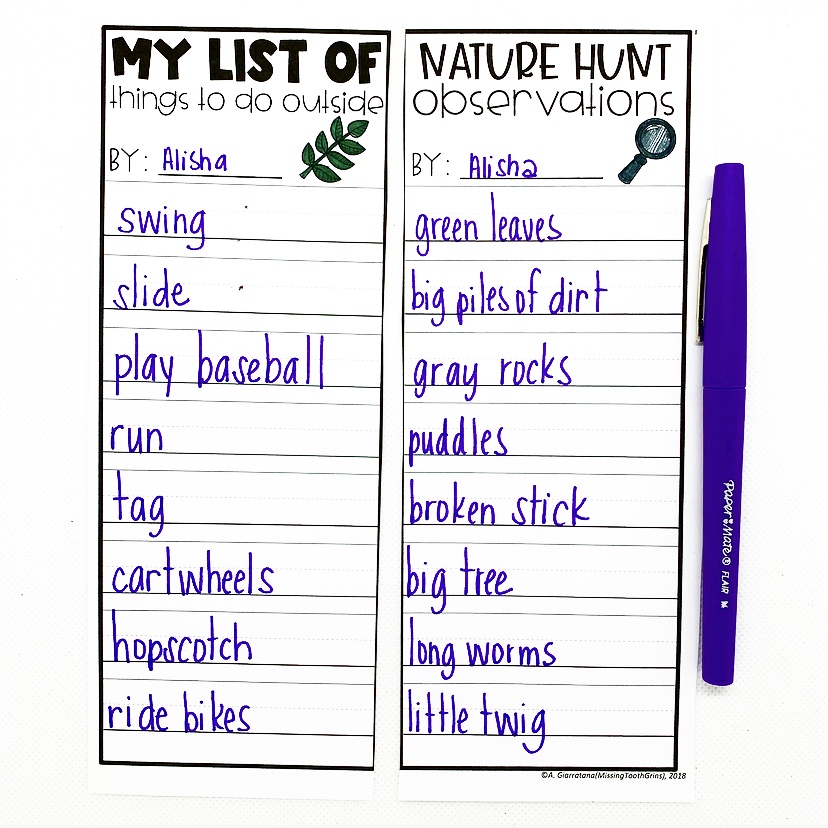 MY LIST OF
things to do outside
BY: Alisha
swing
slide
play baseball
run
tag
cartwheels
hopscotch
ride bikes
NATURE HUNT
observations
BY: Alisha
green leaves
big piles of dirt
gray rocks
puddles
broken stick
big tree
long worms
little twig
©A. Giarratana(MissingToothGrins), 2018
Paper Mate® FLAIR M